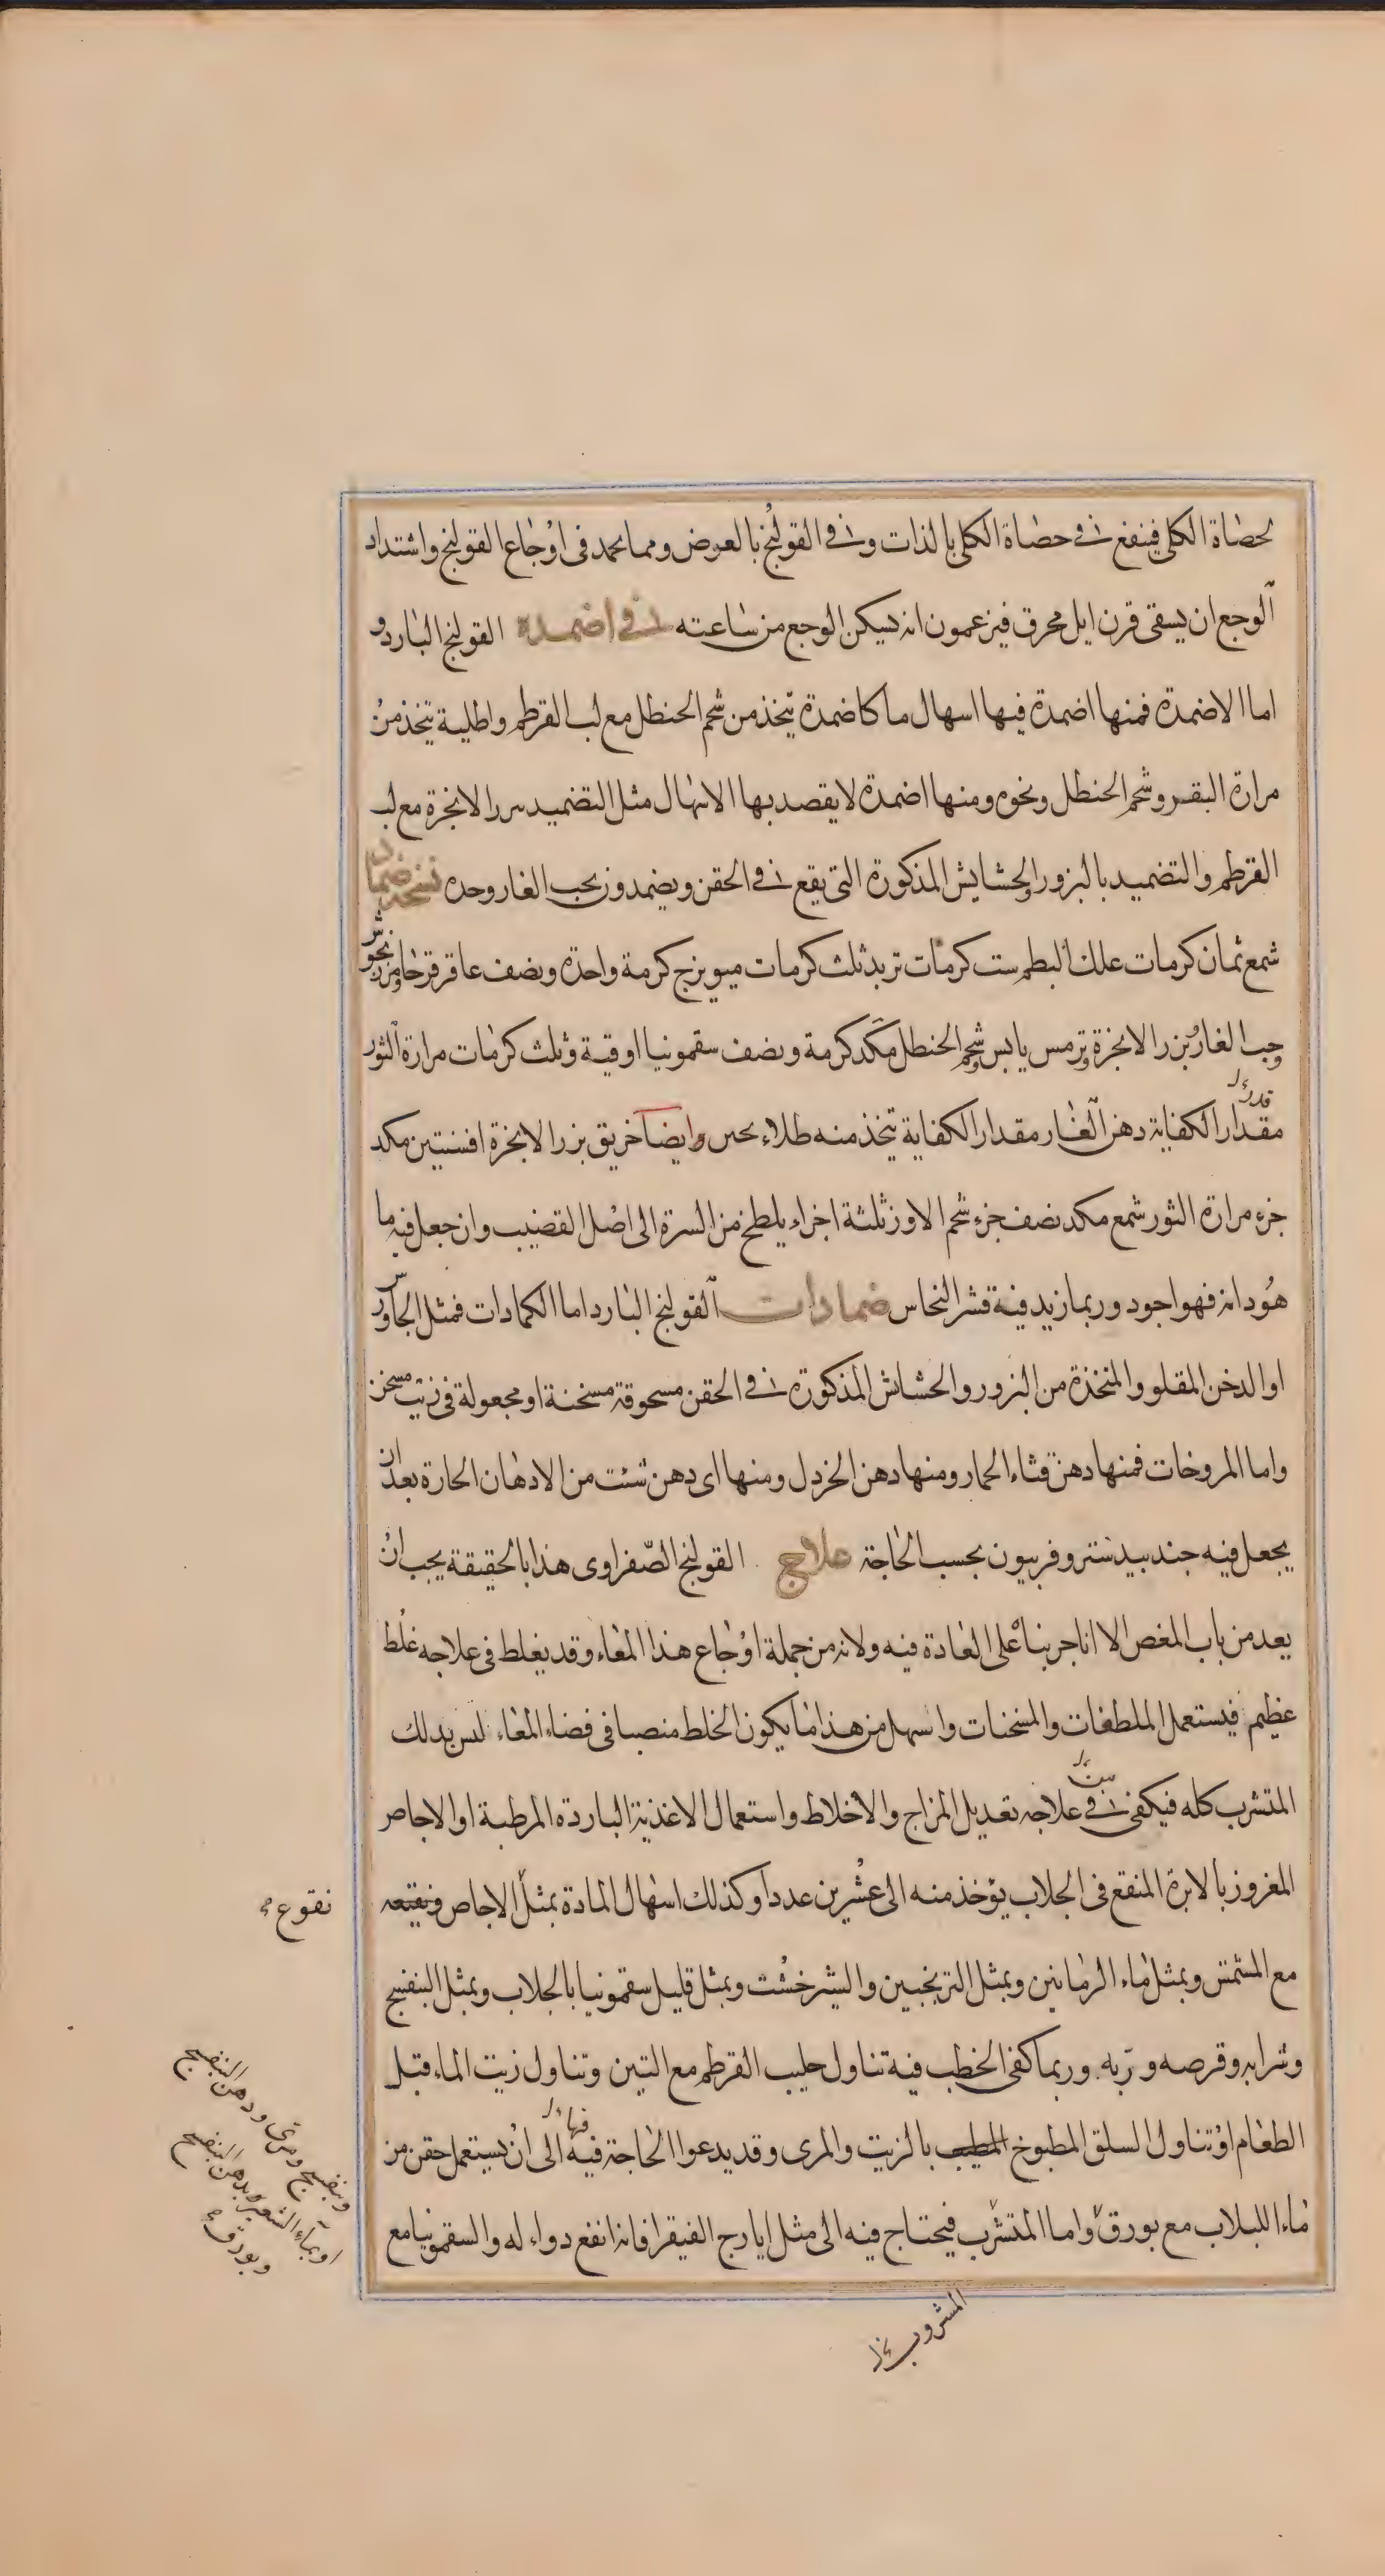 لحصاة الكلى فينفع في حصاة الكلى بالذات وفي القولنج بالعرض ومما يحمد فى اوجاع القولنج واشتداد
الوجع ان يسقى قرن ايل محرق فيزعمون انه يسكن الوجع من ساعته في اضمدة القولنج البارد و
اما الاضمدة فمنها اضمدة فيها اسهال ما كاضمدة يتخذ من شحم الحنطل مع لب القرطم واطلية يتخذ من
مرارة البقر وشحم الحنطل ونحوه ومنها اضمدة لا يقصد بها الاسهال مثل التضميد ببزر الانجرة مع لب
القرطم والتضميد بالبزور والحشايش المذكورة التى يقع في الحقن ويضمدون بحب الغار وحده نسخة ضماد
شمع ثمان كرمات علك البطم ست كرمات تربد ثلث كرمات ميويزج كرمة واحدة ونصف عاقرقرحا ومرزنجوش
وحب الغار بزر الانجرة وترمس يابس وشحم الحنطل مكد كرمة ونصف سقمونيا اوقية وثلث كرمات مرارة الثور
قدر
مقدار الكفاية دهن الغار مقدار الكفاية يتخذ منه طلاء وايضا خريق بزر الانجرة افسنتين مكد
جزء مرارة الثور شمع مكد نصف جزء شحم الاوز ثلثة اجزاء يلطخ من السرة الى اصل القضيب وان جعل فيه ما
هودانه فهو اجود وربما زيد فيه قشر النحاس ضمادات القولنج البارد اما الكمادات فمثل الجاورس
او الدخن المقلو والمتخذة من البزور والحشاش المذكورة في الحقن مسحوقة مسخنة او مجعولة فى زيت مسخن
واما المروخات فمنها دهن قثاء الحمار ومنها دهن الخردل ومنها اى دهن شئت من الادهان الحارة بعد ان
يجعل فيه جندبيدستر وفربيون بحسب الحاجة علاج القولنج الصفراوى هذا بالحقيقة يجب ان
يعد من باب المغص الا انا جرينا على العادة فيه ولانه من جملة اوجاع هذا المعاء وقد يغلط فى علاجه غلط
عظيم فيستعمل الملطفات والمسخنات واسهل من هذا ما يكون الخلط منصبا فى فضاء المعاء ليس بذلك
المتشرب كله فيكفى في علاجه تعديل المزاج والاخلاط واستعمال الاغذية الباردة المرطبة او الاجاص
المغروز بالابرة المنقع فى الجلاب يؤخذ منه الى عشرين عددا وكذلك اسهال المادة بمثل الاجاص ونقيعه
نقوع
مع المشمش وبمثل ماء الرمانين وبمثل الترنجبين والشيرخشت وبمثل قليل سقمونيا بالجلاب وبمثل البنفسج
وشرابه وقرصه وربه. وربما كفى الخطب فيه تناول حليب القرطم مع التين وتناول زيت الماء قبل
الطعام او تناول السلق المطبوخ المطيب بالزيت والمرى وقد يدعوا الحاجة فيه الى ان يستعمل حقن من
فيها
ماء اللبلاب مع بورق واما المتشرب فيحتاج فيه الى مثل ايارج الفيقرا فانه انفع دواء له والسقمونيا مع
وبنفسج ومرى ودهن البنفسج
او بماء الشعير وبدهن البنفسج
وبورق
المشروب